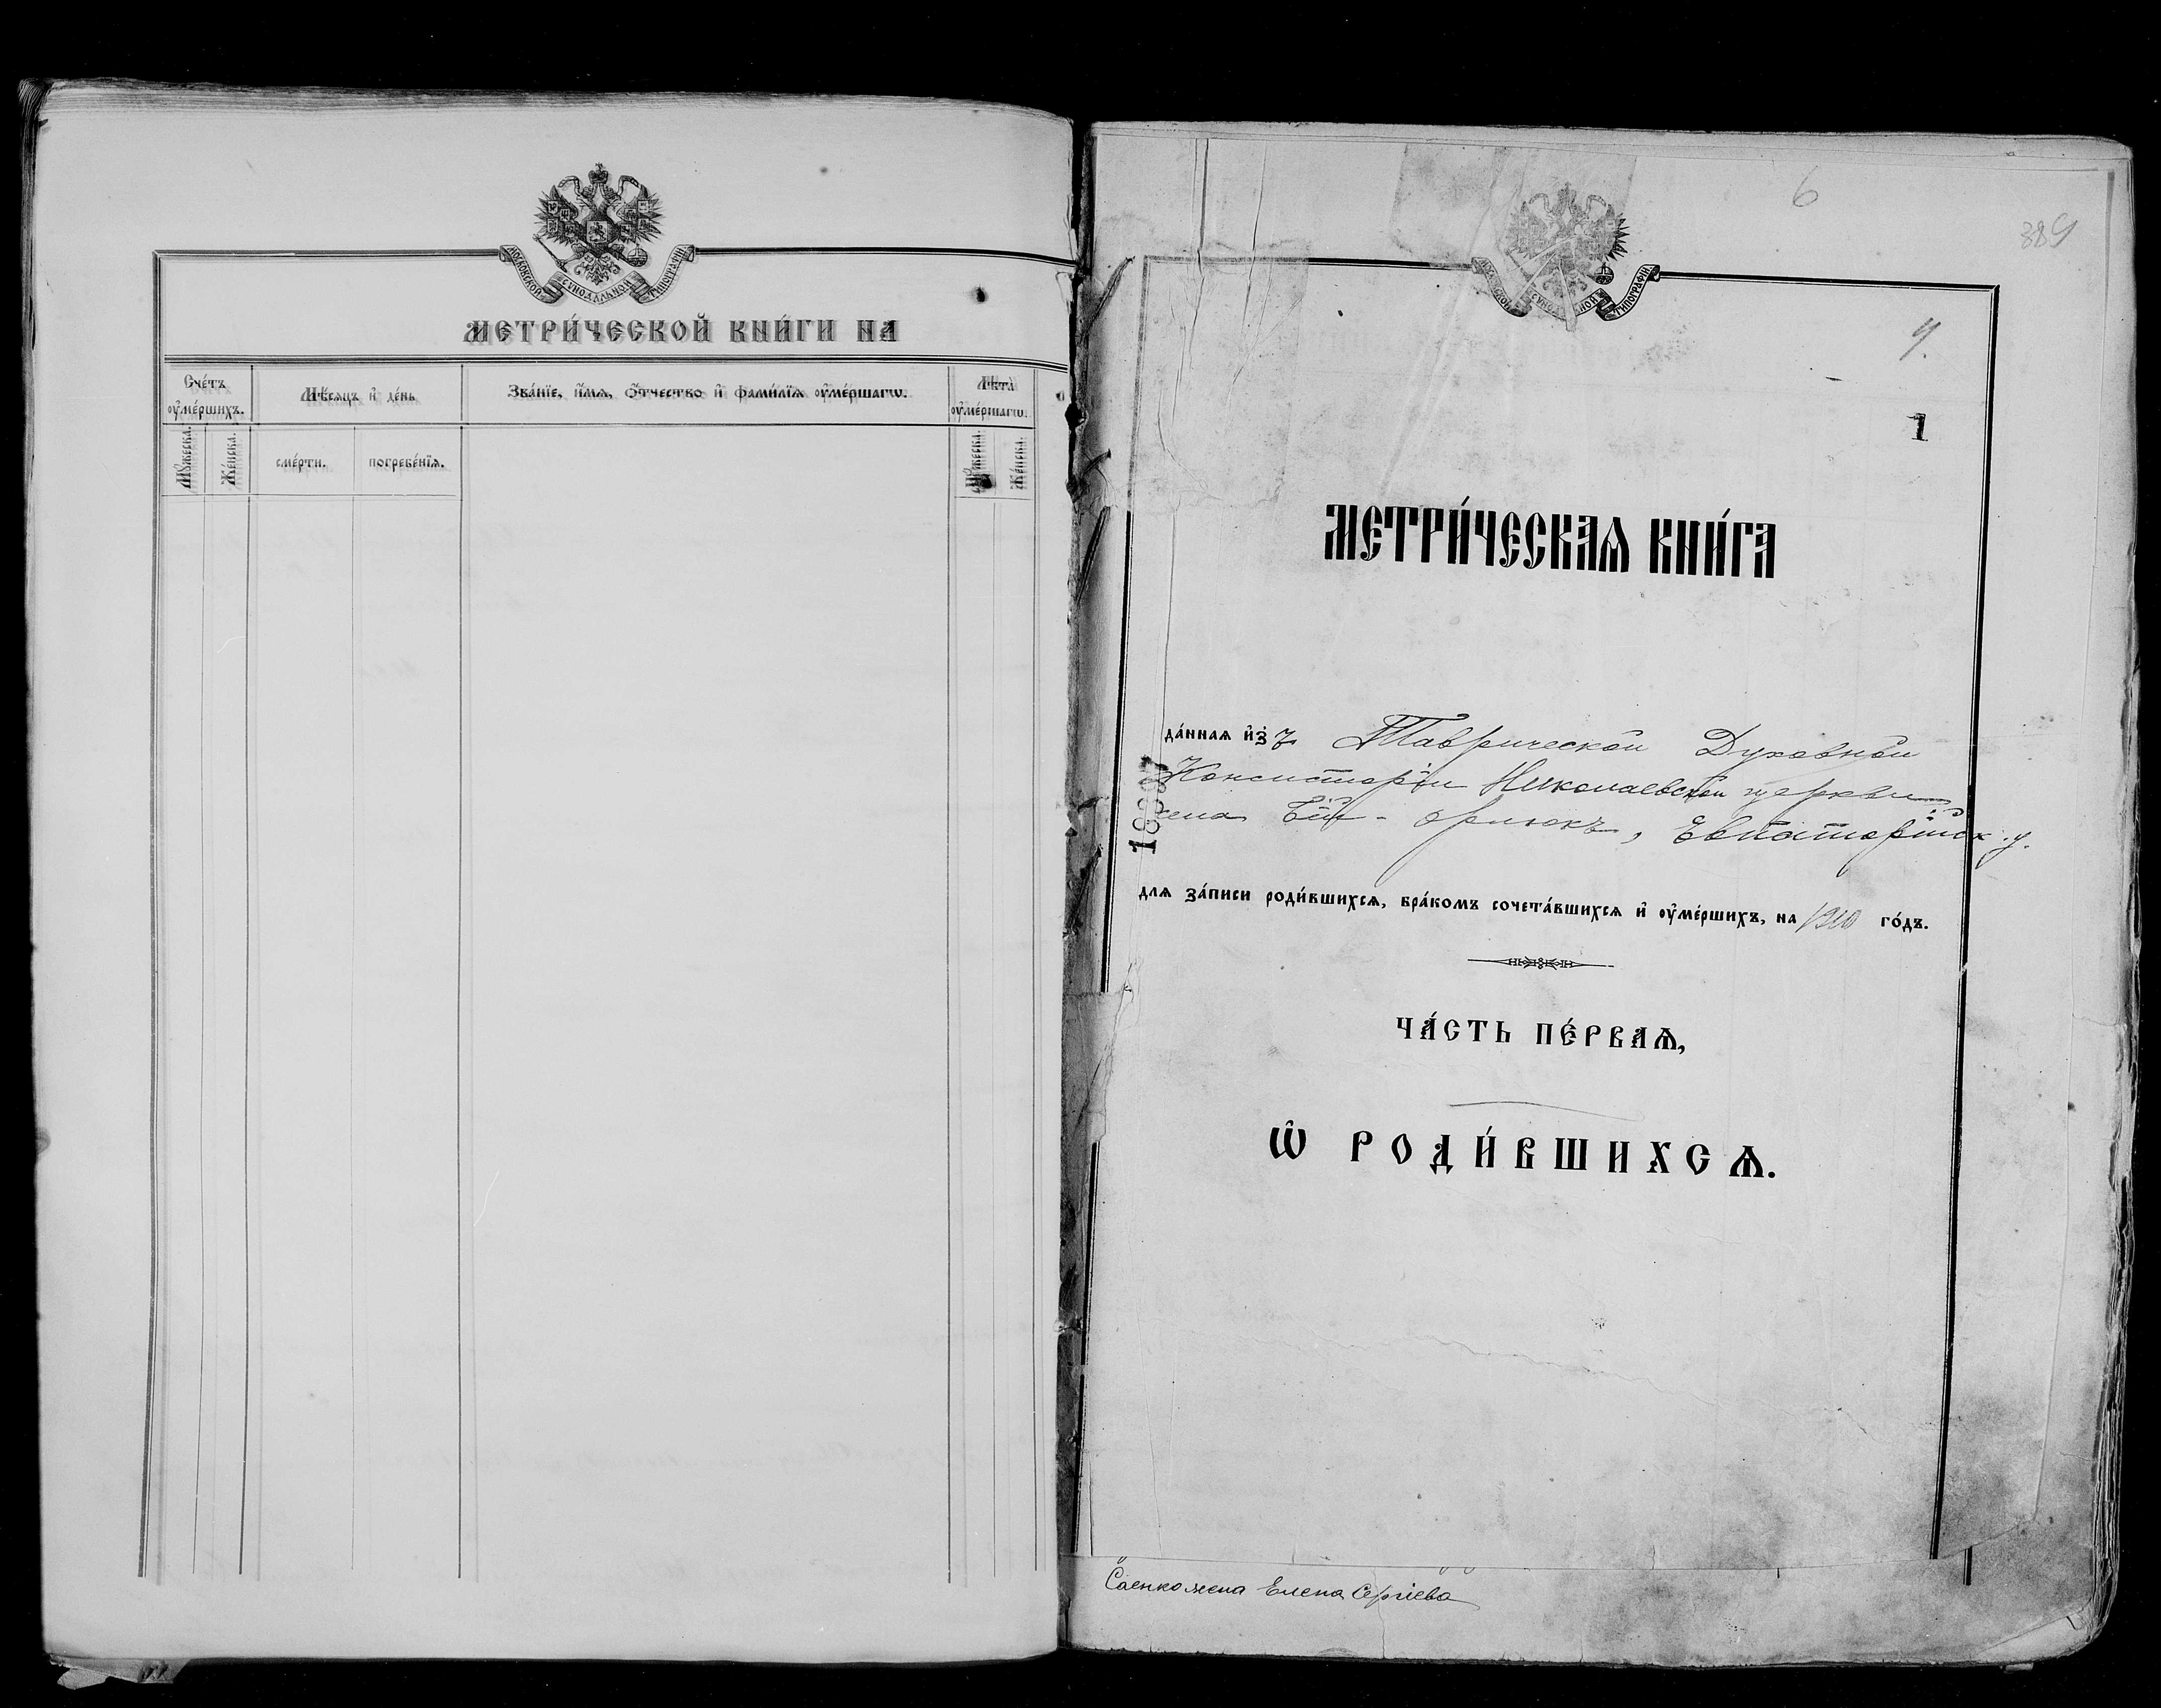 МОСКОВСКОЙ СѴНОДАЛЬНОЙ ТИПОГРАФІИ
МЕТРИ́ЧЕСКОЙ КНИ́ГИ НА
Сче́тъ оу҆ме́ршихъ.
Мѣ́сяцъ и҆ де́нь
Зва́нїе, и҆́мѧ, ѻ҆́тчество и҆ фами́лїѧ оу҆ме́ршагѡ.
Лѣ́та оу҆ме́ршагѡ.
Мꙋ́жеска.
Же́нска.
сме́рти.
погребе́нїѧ.
Мꙋ́жеска.
Же́нска.
6
389
МОСКОВСКОЙ СѴНОДАЛЬНОЙ ТИПОГРАФІИ
1
МЕТРИ́ЧЕСКАѦ КНИ́ГА
да́ннаѧ и҆зъ Таврической Духовной
Консисторіи Николаевской церкви
села Бій-Орлюкъ, Евпаторійск. у.
длѧ за́писи роди́вшихсѧ, бра́комъ сочета́вшихсѧ и҆ оу҆ме́ршихъ, на 1910 го́дъ.
ЧА́СТЬ ПЕ́РВАѦ,
Ѡ҆ РОДИ́ВШИХСѦ.
Елена Сергіева